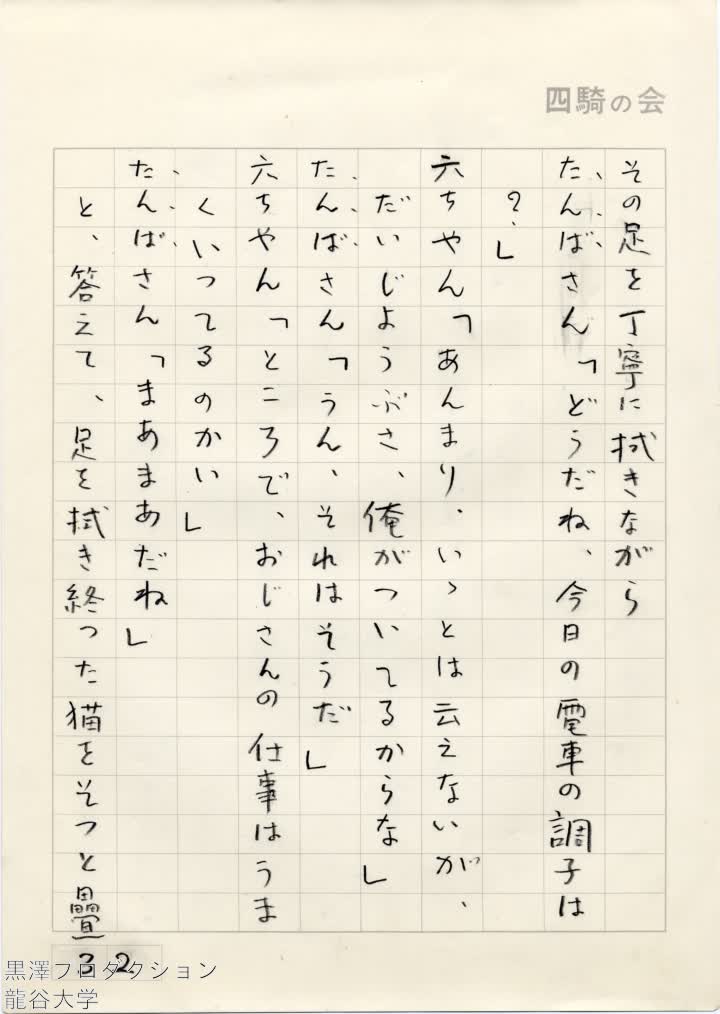 四騎の会
その足を丁寧に拭きながら
たんばさん「どうだね、今日の電車の調子は
？」
六ちやん「あんまり、いゝとは云えないが、
だいじようぶさ、俺がついてるからな」
たんばさん「うん、それはそうだ」
六ちやん「ところで、おじさんの仕事はうま
くいつてるのかい」
たんばさん「まあまあだね」
と、答えて、足を拭き終つた猫をそつと疊
32
黒澤プロダクション
龍谷大学